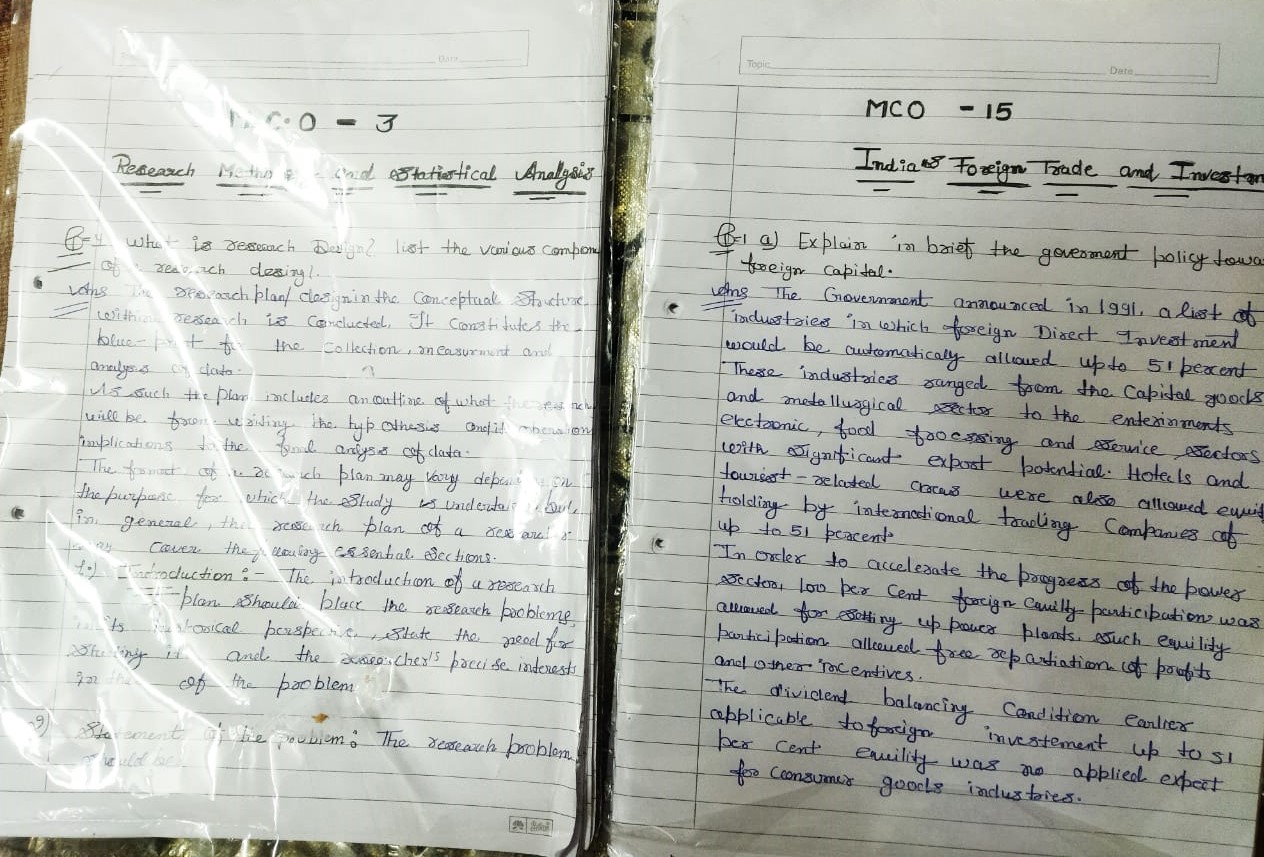 Date
M.C.O - 3
Research and Statistical Analysis
Q-4 What is research Design? list the various compon
of research desing/.
Ans The research plan/design in the Conceptual Structure
within research is Conducted. It Constitutes the
blue-print for the Collection, measurment and
analysis of data.
As such the plan includes an outline of what
will be from writing the hypothesis and it
implications to the final anlysis of data.
The format of plan may vary on
the purpose for which the study is but
in general, the research plan of a
may cover the essential sections.
1.) Introduction :- The introduction of a research
plan should place the research problems
in its historical perspective, state the need for
and the researcher's precise interests
in the of the problem
2) Statement of the problem : The research problem
should be
Topic Date
MCO - 15
India's Foreign Trade and Investm
Q-1 a) Explain in brief the goverment policy towa
foreign capital.
Ans The Government announced in 1991, a list of
industries in which foreign Direct Investment
would be automaticaly allowed up to 51 percent
These industries ranged from the Capital goods
and metallurgical sector to the enterinments
electronic, food and service sectors
with significant export potential. Hotels and
tourist - related were also allowed equit
holding by international trading Companies of
up to 51 percent.
In order to accelerate the progress of the power
sector, 100 per cent foreign participation was
allowed for setting up power plants. such equility
participation allowed free repartiation of profits
and other incentives.
The dividend balancing Condition earlier
applicable to foreign investement up to 51
per cent equility was no applied expect
for consumer goods industries.